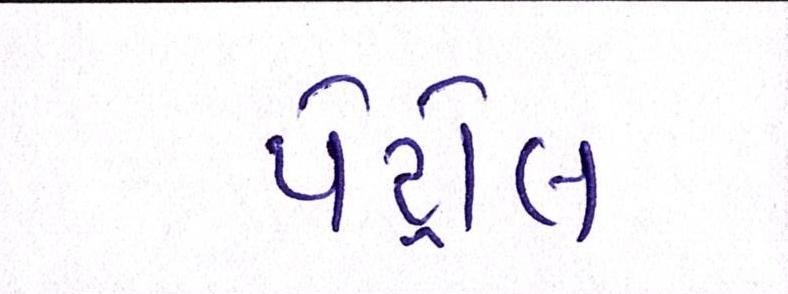 પેટ્રોલ